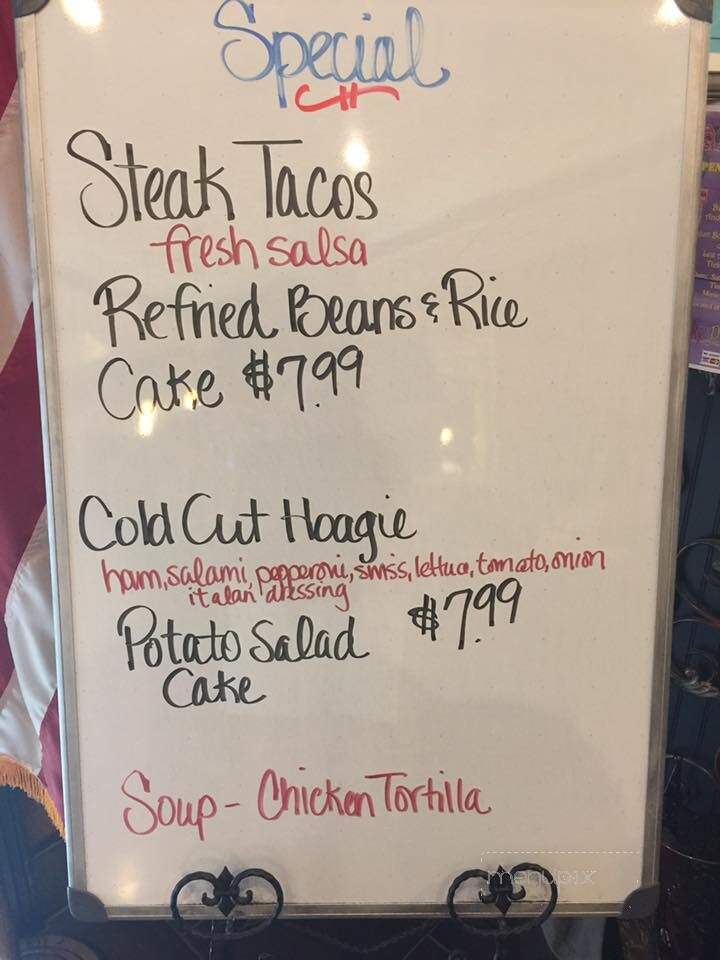 Special
Steak Tacos
fresh salsa
Refried Beans & Rice
Cake $7.99
Cold Cut Hoagie
ham, salami, pepperoni, swiss, lettuce, tomato, onion
italian dressing
Potato Salad $7.99
Cake
Soup - Chicken Tortilla
menupix